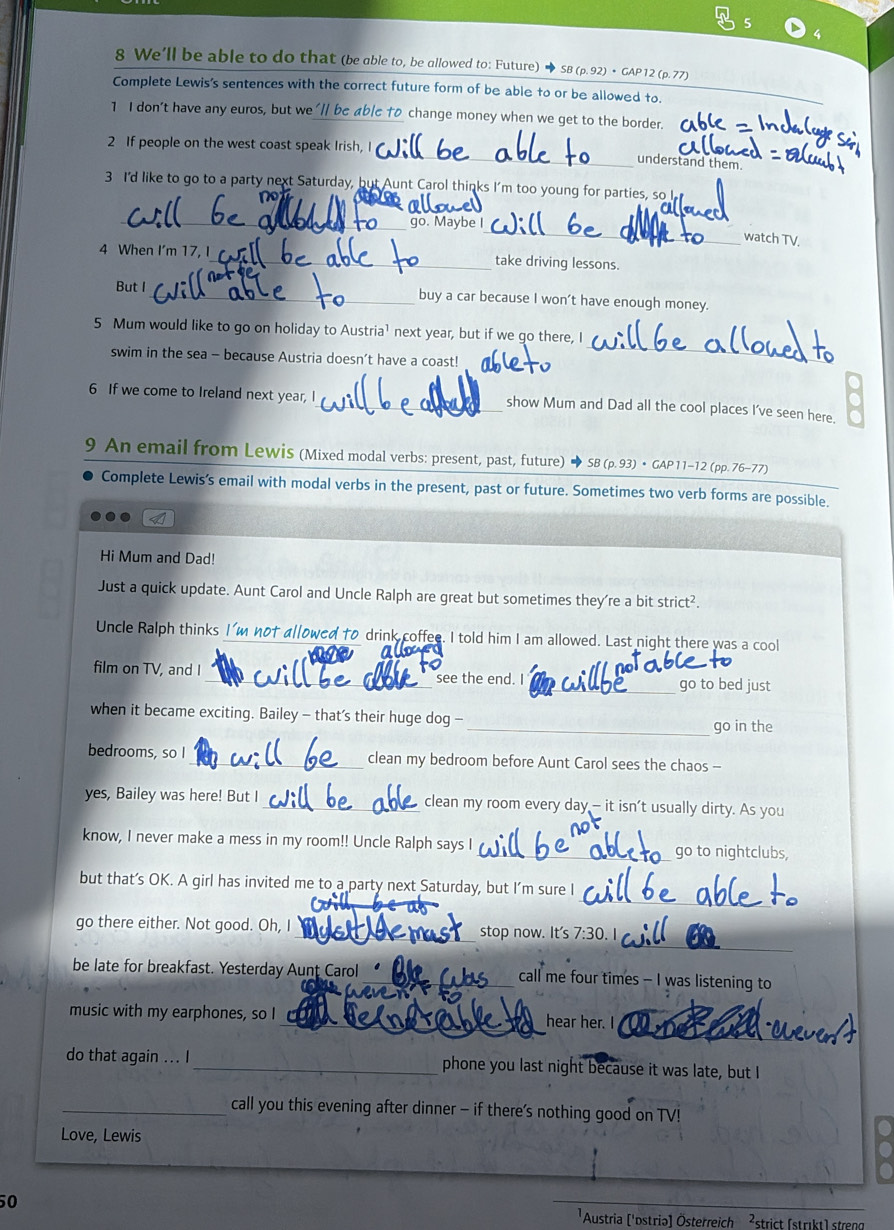 5 4
8 We'll be able to do that (be able to, be allowed to: Future) ➔ SB (p. 92) • GAP 12 (p. 77)
Complete Lewis's sentences with the correct future form of be able to or be allowed to.
1 I don't have any euros, but we 'll be able to change money when we get to the border. able =
2 If people on the west coast speak Irish, I will be able to understand them. allowed =
3 I'd like to go to a party next Saturday, but Aunt Carol thinks I'm too young for parties, so I
will be not allowed to go. Maybe I will be allowed to watch TV.
4 When I'm 17, I will be able to take driving lessons.
But I will not be able to buy a car because I won't have enough money.
5 Mum would like to go on holiday to Austria¹ next year, but if we go there, I will be allowed to
swim in the sea – because Austria doesn't have a coast! able to
6 If we come to Ireland next year, I will be show Mum and Dad all the cool places I've seen here.
9 An email from Lewis (Mixed modal verbs: present, past, future) ➔ SB (p. 93) • GAP 11–12 (pp. 76–77)
Complete Lewis's email with modal verbs in the present, past or future. Sometimes two verb forms are possible.
Hi Mum and Dad!
Just a quick update. Aunt Carol and Uncle Ralph are great but sometimes they're a bit strict².
Uncle Ralph thinks I'm not allowed to drink coffee. I told him I am allowed. Last night there was a cool
film on TV, and I will be allowed to see the end. I will be not able to go to bed just
when it became exciting. Bailey – that's their huge dog – go in the
bedrooms, so I will be clean my bedroom before Aunt Carol sees the chaos –
yes, Bailey was here! But I will be able clean my room every day – it isn't usually dirty. As you
know, I never make a mess in my room!! Uncle Ralph says I will be not able to go to nightclubs,
but that's OK. A girl has invited me to a party next Saturday, but I'm sure I will be able to
go there either. Not good. Oh, I must stop now. It's 7:30. I will
be late for breakfast. Yesterday Aunt Carol was call me four times – I was listening to
music with my earphones, so I hear her. I
do that again … I phone you last night because it was late, but I
call you this evening after dinner – if there's nothing good on TV!
Love, Lewis
50
¹Austria [ˈɒstriə] Österreich ²strict [strɪkt] streng